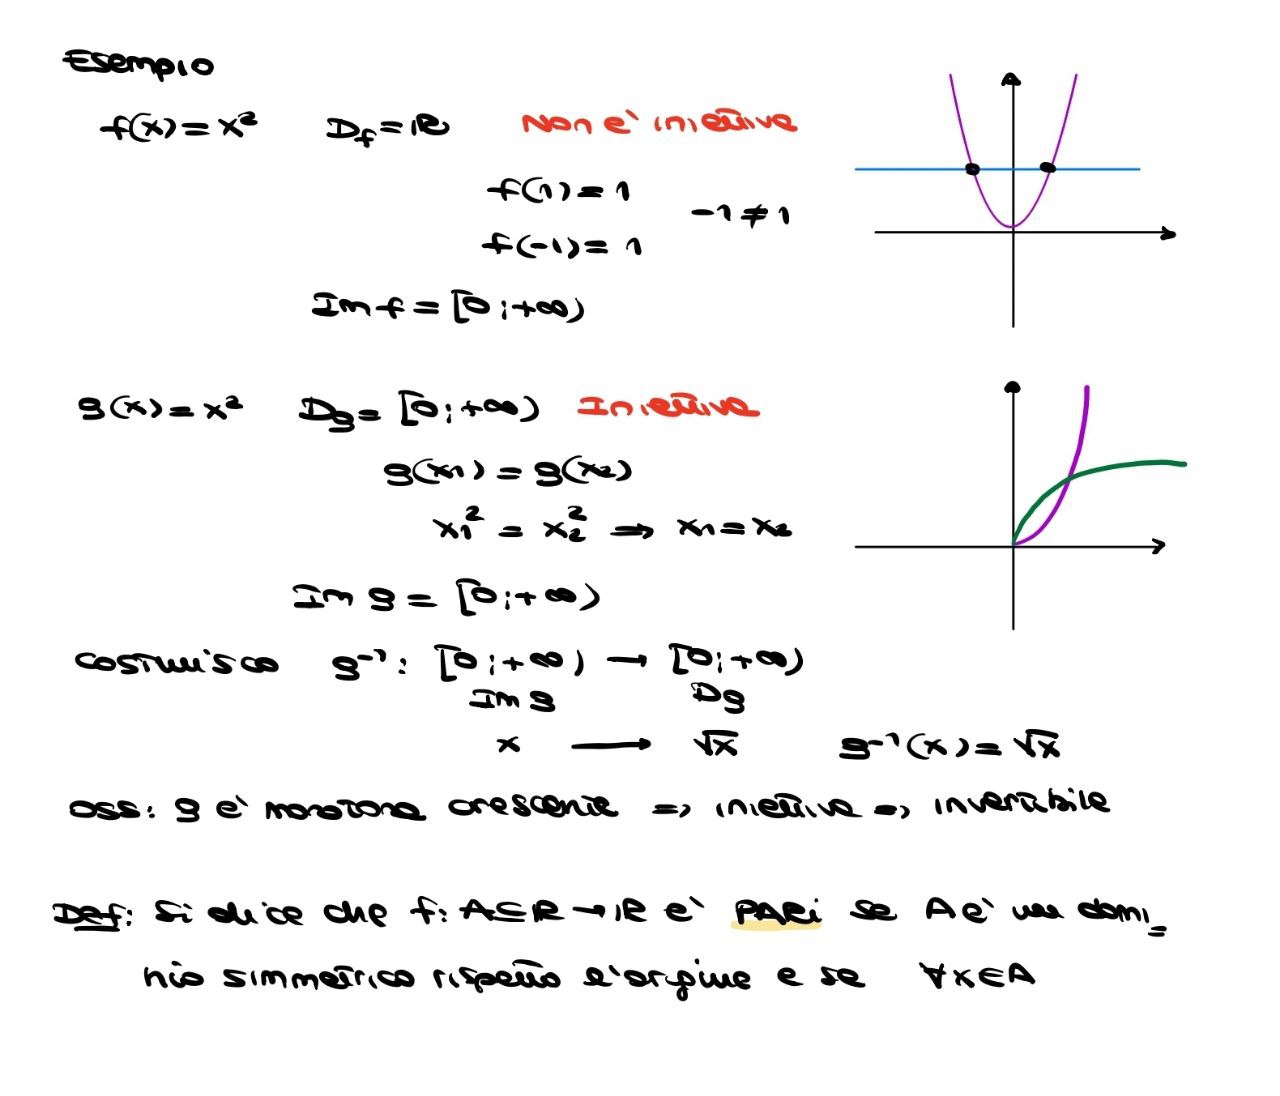 Esempio
f(x) = x² D_f = ℝ Non è iniettiva
f(1) = 1
-1 ≠ 1
f(-1) = 1
Im f = [0;+∞)
g(x) = x² Dg = [0;+∞) Iniettiva
g(x₁) = g(x₂)
x₁² = x₂² ⇒ x₁ = x₂
Im g = [0;+∞)
Costruisco g⁻¹: [0;+∞) → [0;+∞)
Im g Dg
x → √x g⁻¹(x) = √x
Oss: g è monotona crescente => iniettiva => invertibile
Def: Si dice che f: A⊆ℝ → ℝ è PARI se A è un domi=
nio simmetrico rispetto l'origine e se ∀x∈A